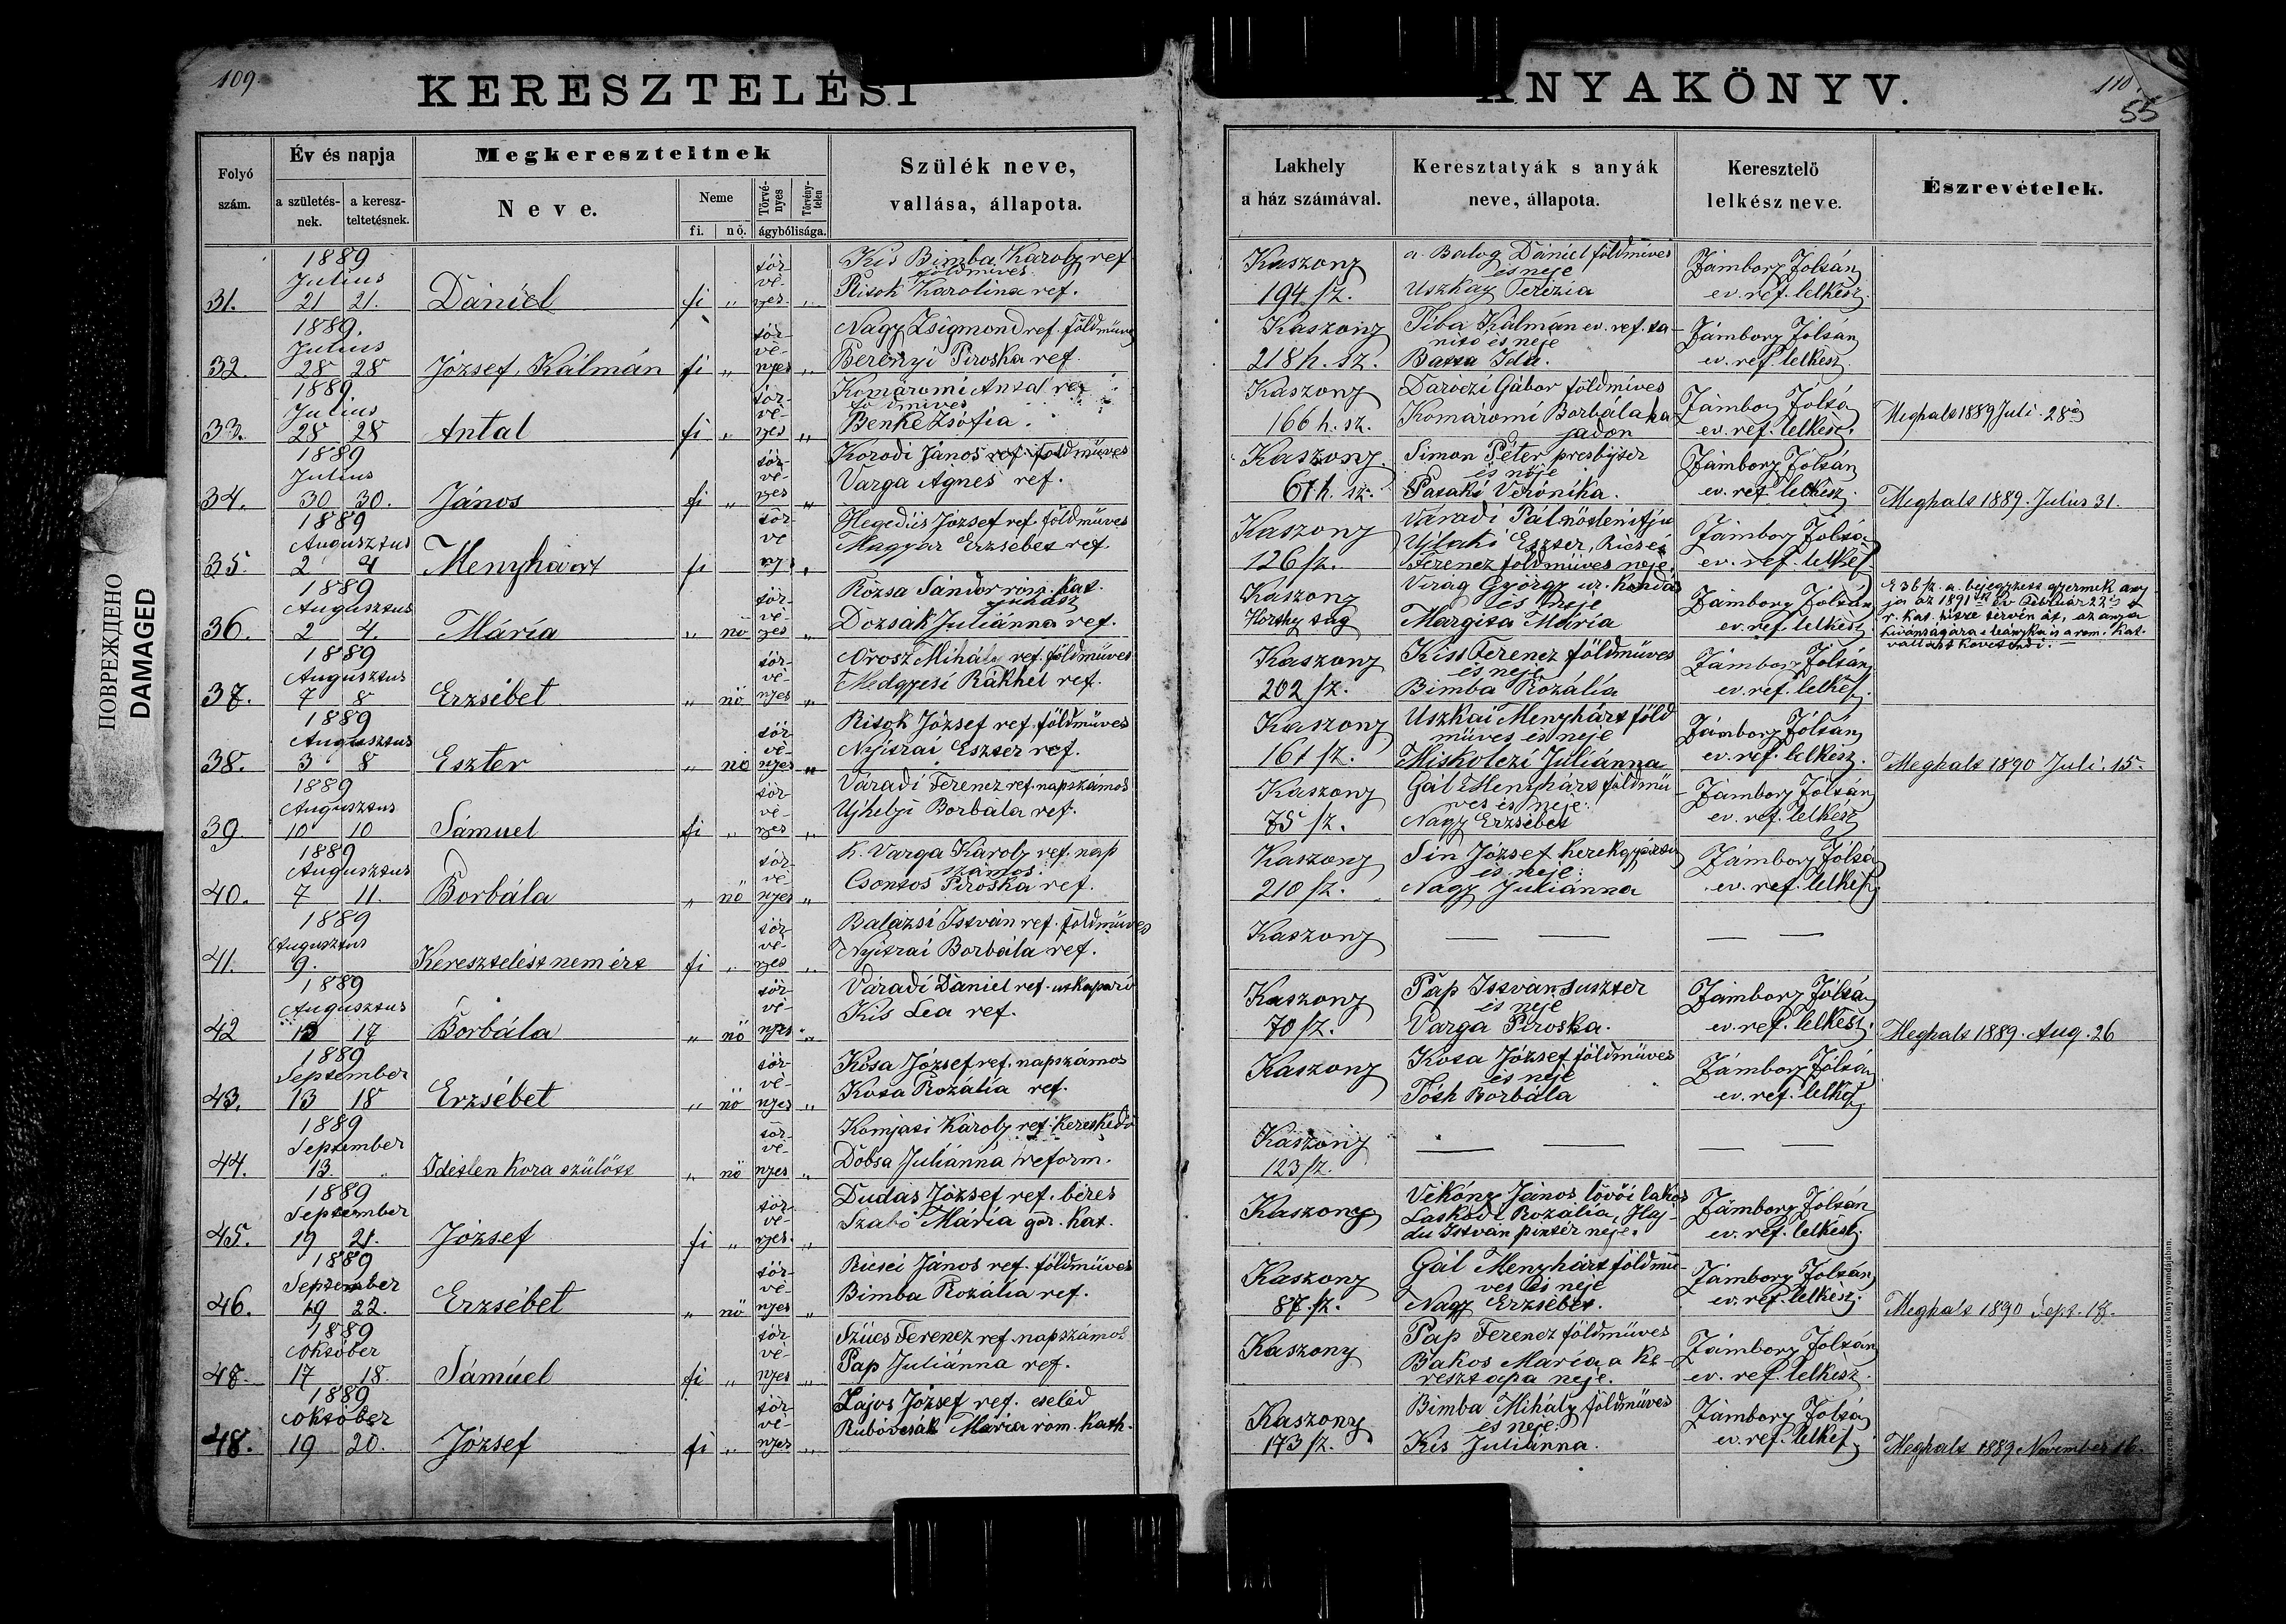 109.
KERESZTELÉSI
ANYAKÖNYV.
110.
55
Folyó szám.
Év és napja
a születés-nek.
a keresz-teltetésnek.
Megkereszteltnek
Neve.
Neme
fi.
nő.
Törvé-nyes
Törvény-telen
ágybólisága.
Szülék neve,
vallása, állapota.
Lakhely
a ház számával.
Keresztatyák s anyák
neve, állapota.
Keresztelő
lelkész neve.
Észrevételek.
1889 Julius
31. 21 21. Dániel fi „ törvényes „
Kis Bimba Károly ref földmives
Ritok Karolina ref.
Kaszony 194 sz.
a. Balog Dániel földmives és neje
Uszkay Terézia
Jámbory Zoltán ev. ref. lelkész.
1889. Julius
32. 28 28 József, Kálmán fi „ törvényes „
Nagy Zsigmond ref. földmüves
Berényi Piroska ref.
Kaszony 218 h. sz.
Tiba Kálmán ev. ref. tanitó és neje
Ida.
Jámbory Zoltán ev. ref. lelkész
1889 Julius
33. 28 28 Antal fi „ törvényes „
Komáromi Antal ref földmives
Benke Zsófia.
Kaszony 166 h. sz.
Daróczi Gábor földmives
Komáromi Borbála hajadon
Jámbory Zoltán ev. ref. lelkész.
Meghalt 1889 Juli. 28án
1889 Julius
34. 30 30. János fi „ törvényes „
Korodi János ref. földmüves
Varga Ágnes ref.
Kaszony. 67 h. sz.
Simon Péter presbyter és nője
Pataki Verónika.
Jámbory Zoltán ev. ref. lelkész.
Meghalt 1889. Julius 31.
1889 Augusztus
35. 2 4 Menyhárt fi törvényes „
Hegedüs József ref. földmüves
Magyar Erzsébet ref.
Kaszony 126 sz.
Váradi Pál nőtlen ifju
Ujlaki Eszter, Ricsei
Ferencz földmüves neje.
Jámbory Zoltán ev. ref. lelkész
1889 Augusztus
36. 2 4. Mária „ nő törvényes „
Rózsa Sándor róm. kat. juhász
Dozsák Juliánna ref.
Kaszony Horthy tag
Virág György ur. kondás és neje
Margita Mária
Jámbory Zoltán ev. ref. lelkész.
E 36 sz. a. bejegyzett gyermek any
ja az 1891 ik év Február 22 én a
r. kat. hitre térvén át, az anya
kivánságára e leányka is a rom. kat.
vallást követendi. —
1889 Augusztus
37. 7 8 Erzsébet „ nő törvényes „
Orosz Mihály ref. földmüves
Medgyesi Rákhel ref.
Kaszony 202 sz.
Kiss Ferencz földmüves és neje
Bimba Rozália
Jámbory Zoltán ev. ref. lelkész.
1889 Augusztus
38. 3 8 Eszter „ nő törvényes „
Ritok József ref. földmüves
Nyitrai Eszter ref.
Kaszony 161 sz.
Uszkai Menyhárt földmüves és neje
Miskolczi Juliánna
Jámbory Zoltán ev. ref. lelkész.
Meghalt 1890 Juli. 15.
1889 Augusztus
39. 10 10 Sámuel fi „ törvényes „
Váradi Ferencz ref. napszámos
Ujhelyi Borbála ref.
Kaszony 75 sz.
Gál Menyhárt földmüves és neje:
Nagy Erzsébet
Jámbory Zoltán ev. ref. lelkész
1889 Augusztus
40. 7 11. Borbála „ nő törvényes „
K. Varga Károly ref. napszámos.
Csontos Piroska ref.
Kaszony 210 sz.
Sin József kerekgyártó és neje:
Nagy Juliánna
Jámbory Zoltán ev. ref. lelkész.
1889 Augusztus
41. 9. Keresztelést nem ért fi „ törvényes „
Balázsi István ref. földmüves
Nyitrai Borbála ref.
Kaszony — — — —
1889 Augusztus
42 13 17 Borbála „ nő törvényes „
Váradi Dániel ref. utkaparó
Kis Lea ref.
Kaszony 70 sz.
Pap István suszter és neje
Varga Piroska.
Jámbory Zoltán ev. ref. lelkész.
Meghalt 1889. Aug. 26
1889 September
43. 13 18 Erzsébet „ nő törvényes „
Kósa József ref. napszámos
Kosa Rozália ref.
Kaszony
Kosa József földmüves és neje
Tóth Borbála
Jámbory Zoltán ev. ref. lelkész
1889 September
44. 13. „ Idétlen kora szülött „ nő törvényes „
Komjati Károly ref. kereskedő
Dobsa Juliánna reform.
Kaszony 123 sz. — — — —
1889 September
45. 19 21. József fi „ törvényes „
Dudás József ref. béres
Szabó Mária gör. kat.
Kaszony
Vékony János lövői lakos
Laskodi Rozália, Haj-
du István pintér neje.
Jámbory Zoltán ev. ref. lelkész.
1889 September
46. 19 22. Erzsébet „ nő törvényes „
Ricsei János ref. földmüves
Bimba Rozália ref.
Kaszony 87. sz.
Gál Menyhárt földmüves és neje
Nagy Erzsébet.
Jámbory Zoltán ev. ref. lelkész.
Meghalt 1890 Sept. 18.
1889 Október
48. 17 18. Sámúel fi „ törvényes „
Szücs Ferencz ref. napszámos
Pap Juliánna ref.
Kaszony
Pap Ferencz földmüves
Bakos Mária a ke-
resztapa neje.
Jámbory Zoltán ev. ref. lelkész.
1889 Október
48. 19 20. József fi „ törvényes „
Lajos József ref. cseléd
Rubóvcsák Mária rom. kath.
Kaszony 173 sz.
Bimba Mihály földmüves és neje:
Kis Juliánna.
Jámbory Zoltán ev. ref. lelkész.
Meghalt 1889 November 16.
ПОВРЕЖДЕНО
DAMAGED
Debreczen, 1865. Nyomatott a város könyvnyomdájában.